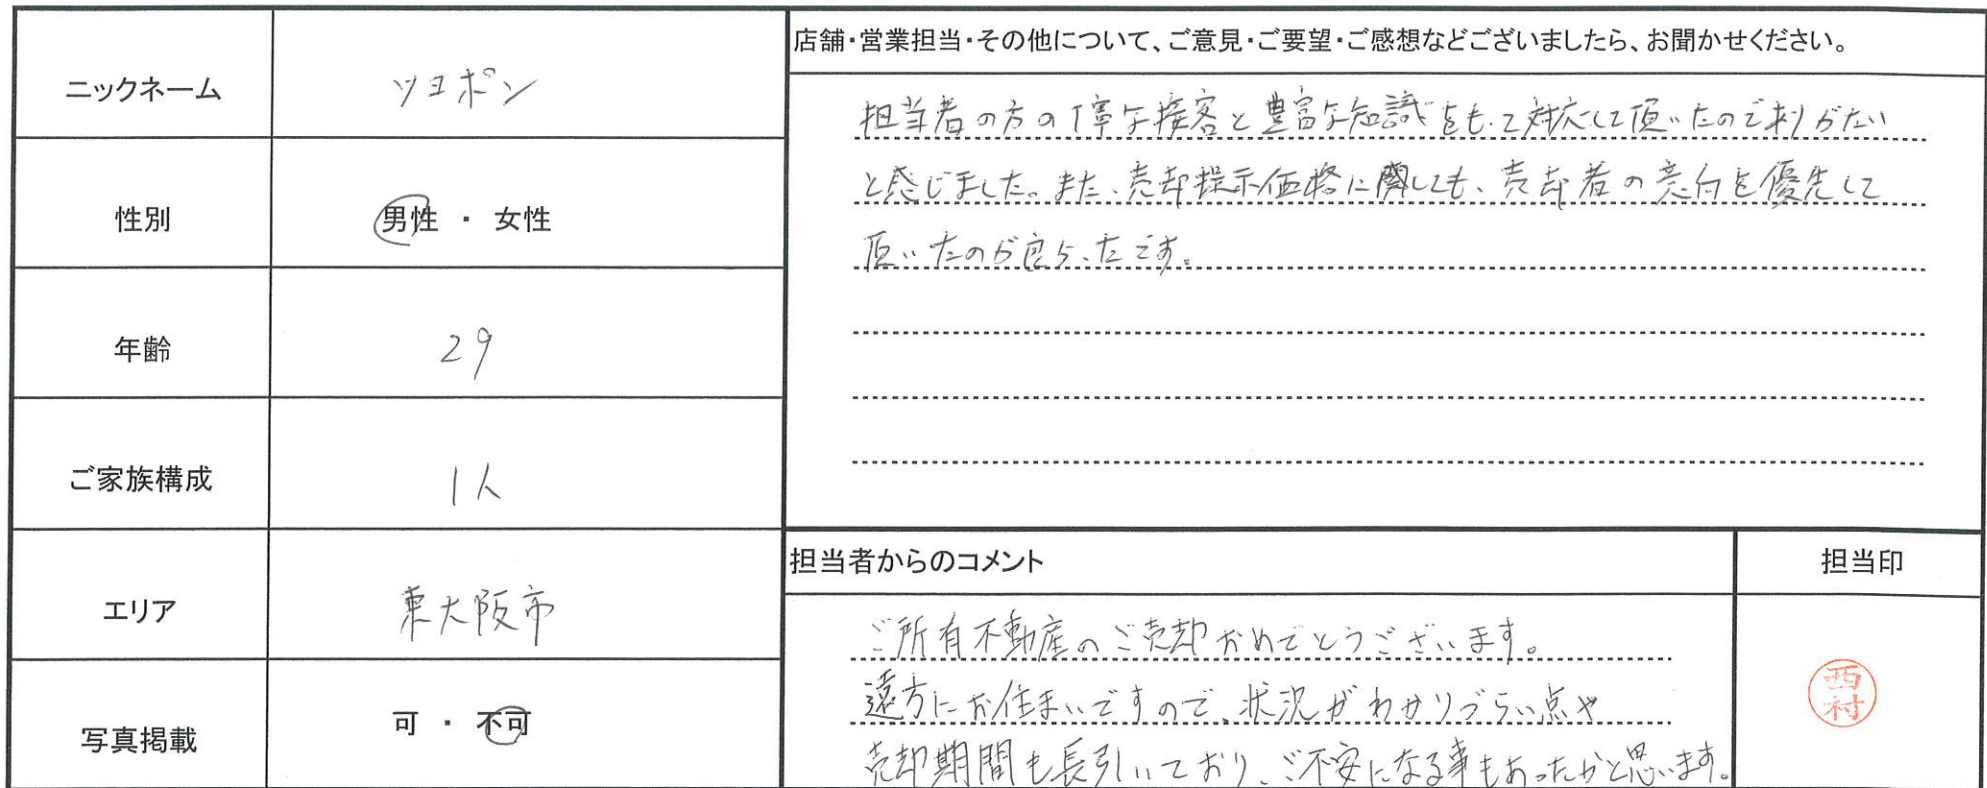 ニックネーム
ツヨポン
性別
男性 ・ 女性
年齢
29
ご家族構成
1人
エリア
東大阪市
写真掲載
可 ・ 不可
店舗・営業担当・その他について、ご意見・ご要望・ご感想などございましたら、お聞かせください。
担当者の方の丁寧な接客と豊富な知識をもって対応して頂いたのでありがたい
と感じました。また、売却提示価格に関しても、売却者の意向を優先して
頂いたのが良かったです。
担当者からのコメント
担当印
ご所有不動産のご売却おめでとうございます。
遠方にお住まいですので、状況がわかりづらい点や
売却期間も長引いており、ご不安になる事もあったかと思います。
西村